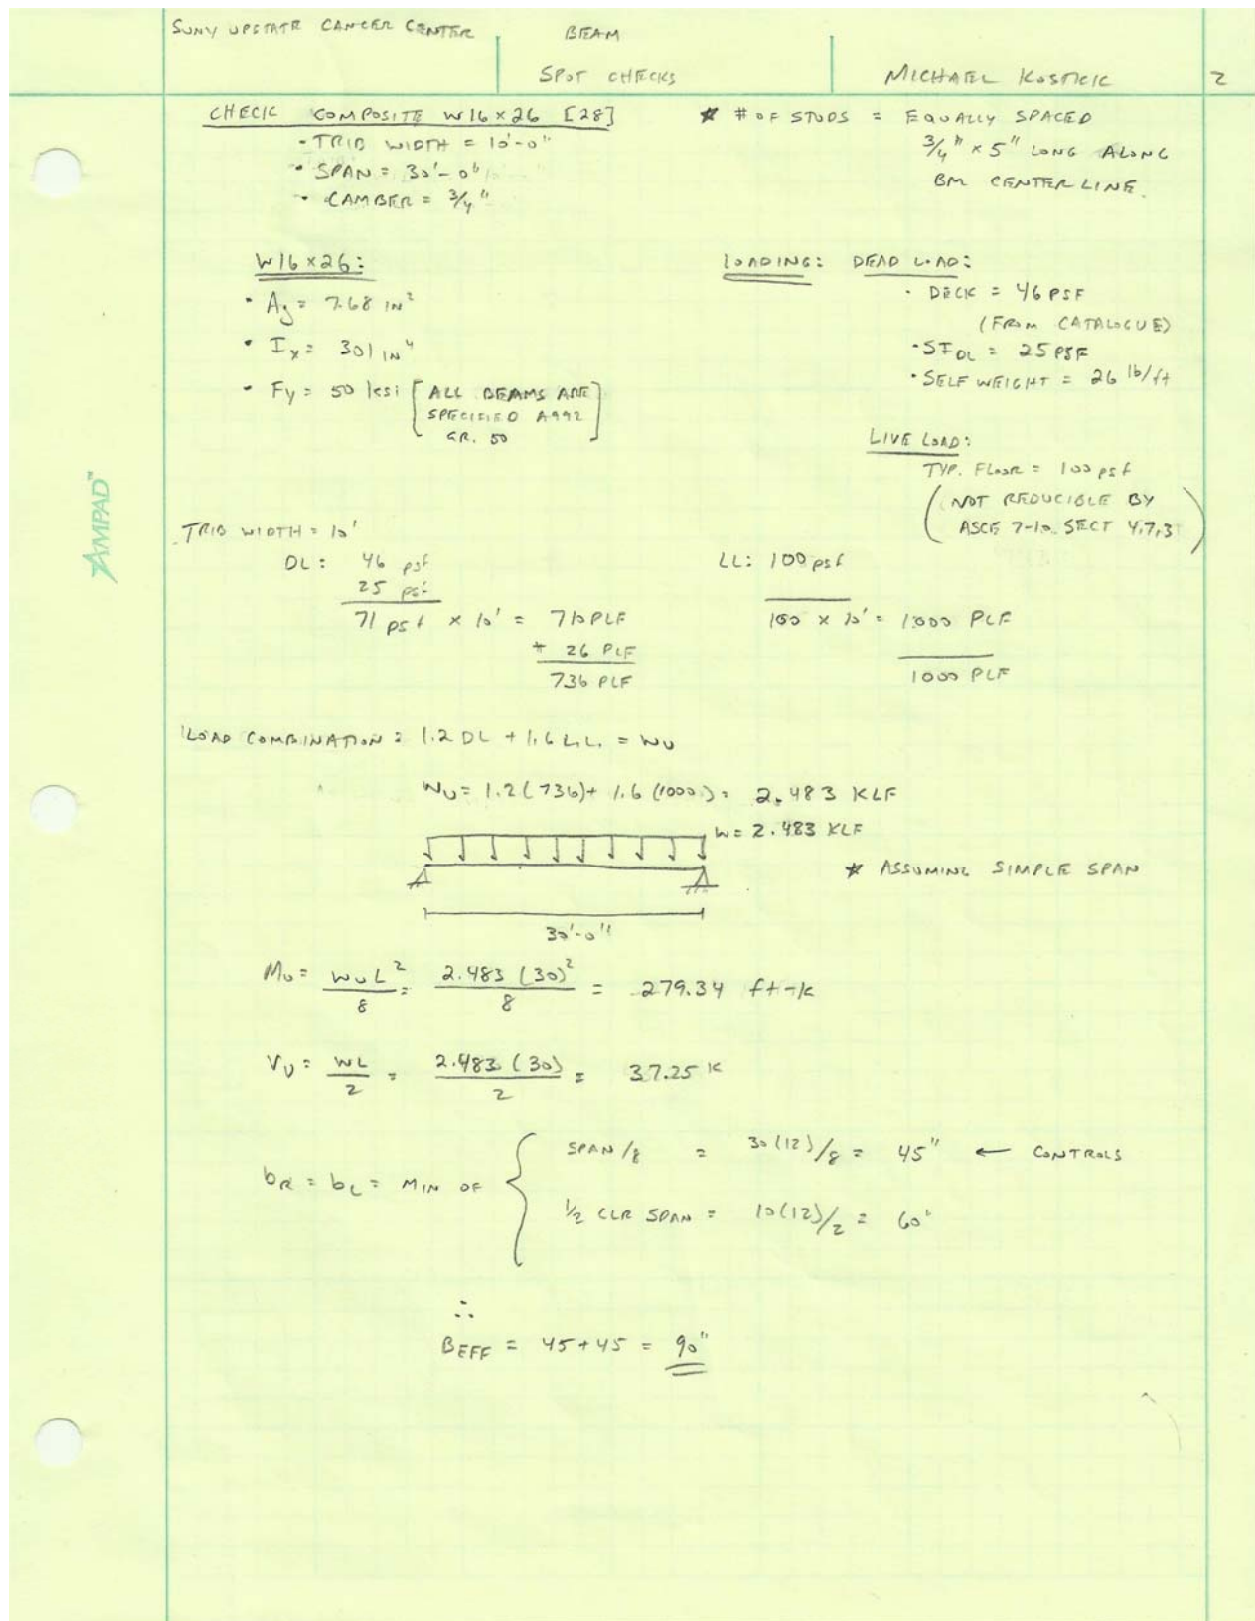 SUNY UPSTATE CANCER CENTER
BEAM
SPOT CHECKS
MICHAEL KOSTICK
2
CHECK COMPOSITE W16×26 [28]
• TRIB WIDTH = 10'-0"
• SPAN = 30'-0"
• CAMBER = 3/4"
* # OF STUDS = EQUALLY SPACED
3/4" × 5" LONG ALONG
BM CENTER LINE.
W16×26:
• Ag = 7.68 IN²
• Ix = 301 IN⁴
• Fy = 50 ksi [ALL BEAMS ARE
SPECIFIED A992
GR. 50]
LOADING: DEAD LOAD:
• DECK = 46 PSF
(FROM CATALOGUE)
• SIDL = 25 PSF
• SELF WEIGHT = 26 lb/ft
LIVE LOAD:
TYP. FLOOR = 100 psf
(NOT REDUCIBLE BY
ASCE 7-10 SECT 4.7.3)
AMPAD™
TRIB WIDTH = 10'
DL: 46 psf
25 psf
71 psf × 10' = 710 PLF
+ 26 PLF
736 PLF
LL: 100 psf
100 × 10' = 1000 PLF
1000 PLF
LOAD COMBINATION = 1.2 DL + 1.6 L.L. = WU
WU = 1.2(736) + 1.6(1000) = 2.483 KLF
W = 2.483 KLF
* ASSUMING SIMPLE SPAN
30'-0"
MU = WUL²/8 = 2.483(30)²/8 = 279.34 ft-k
VU = WL/2 = 2.483(30)/2 = 37.25 K
bR = bL = MIN OF { SPAN/8 = 30(12)/8 = 45" ← CONTROLS
1/2 CLR SPAN = 10(12)/2 = 60"
∴
BEFF = 45+45 = 90"